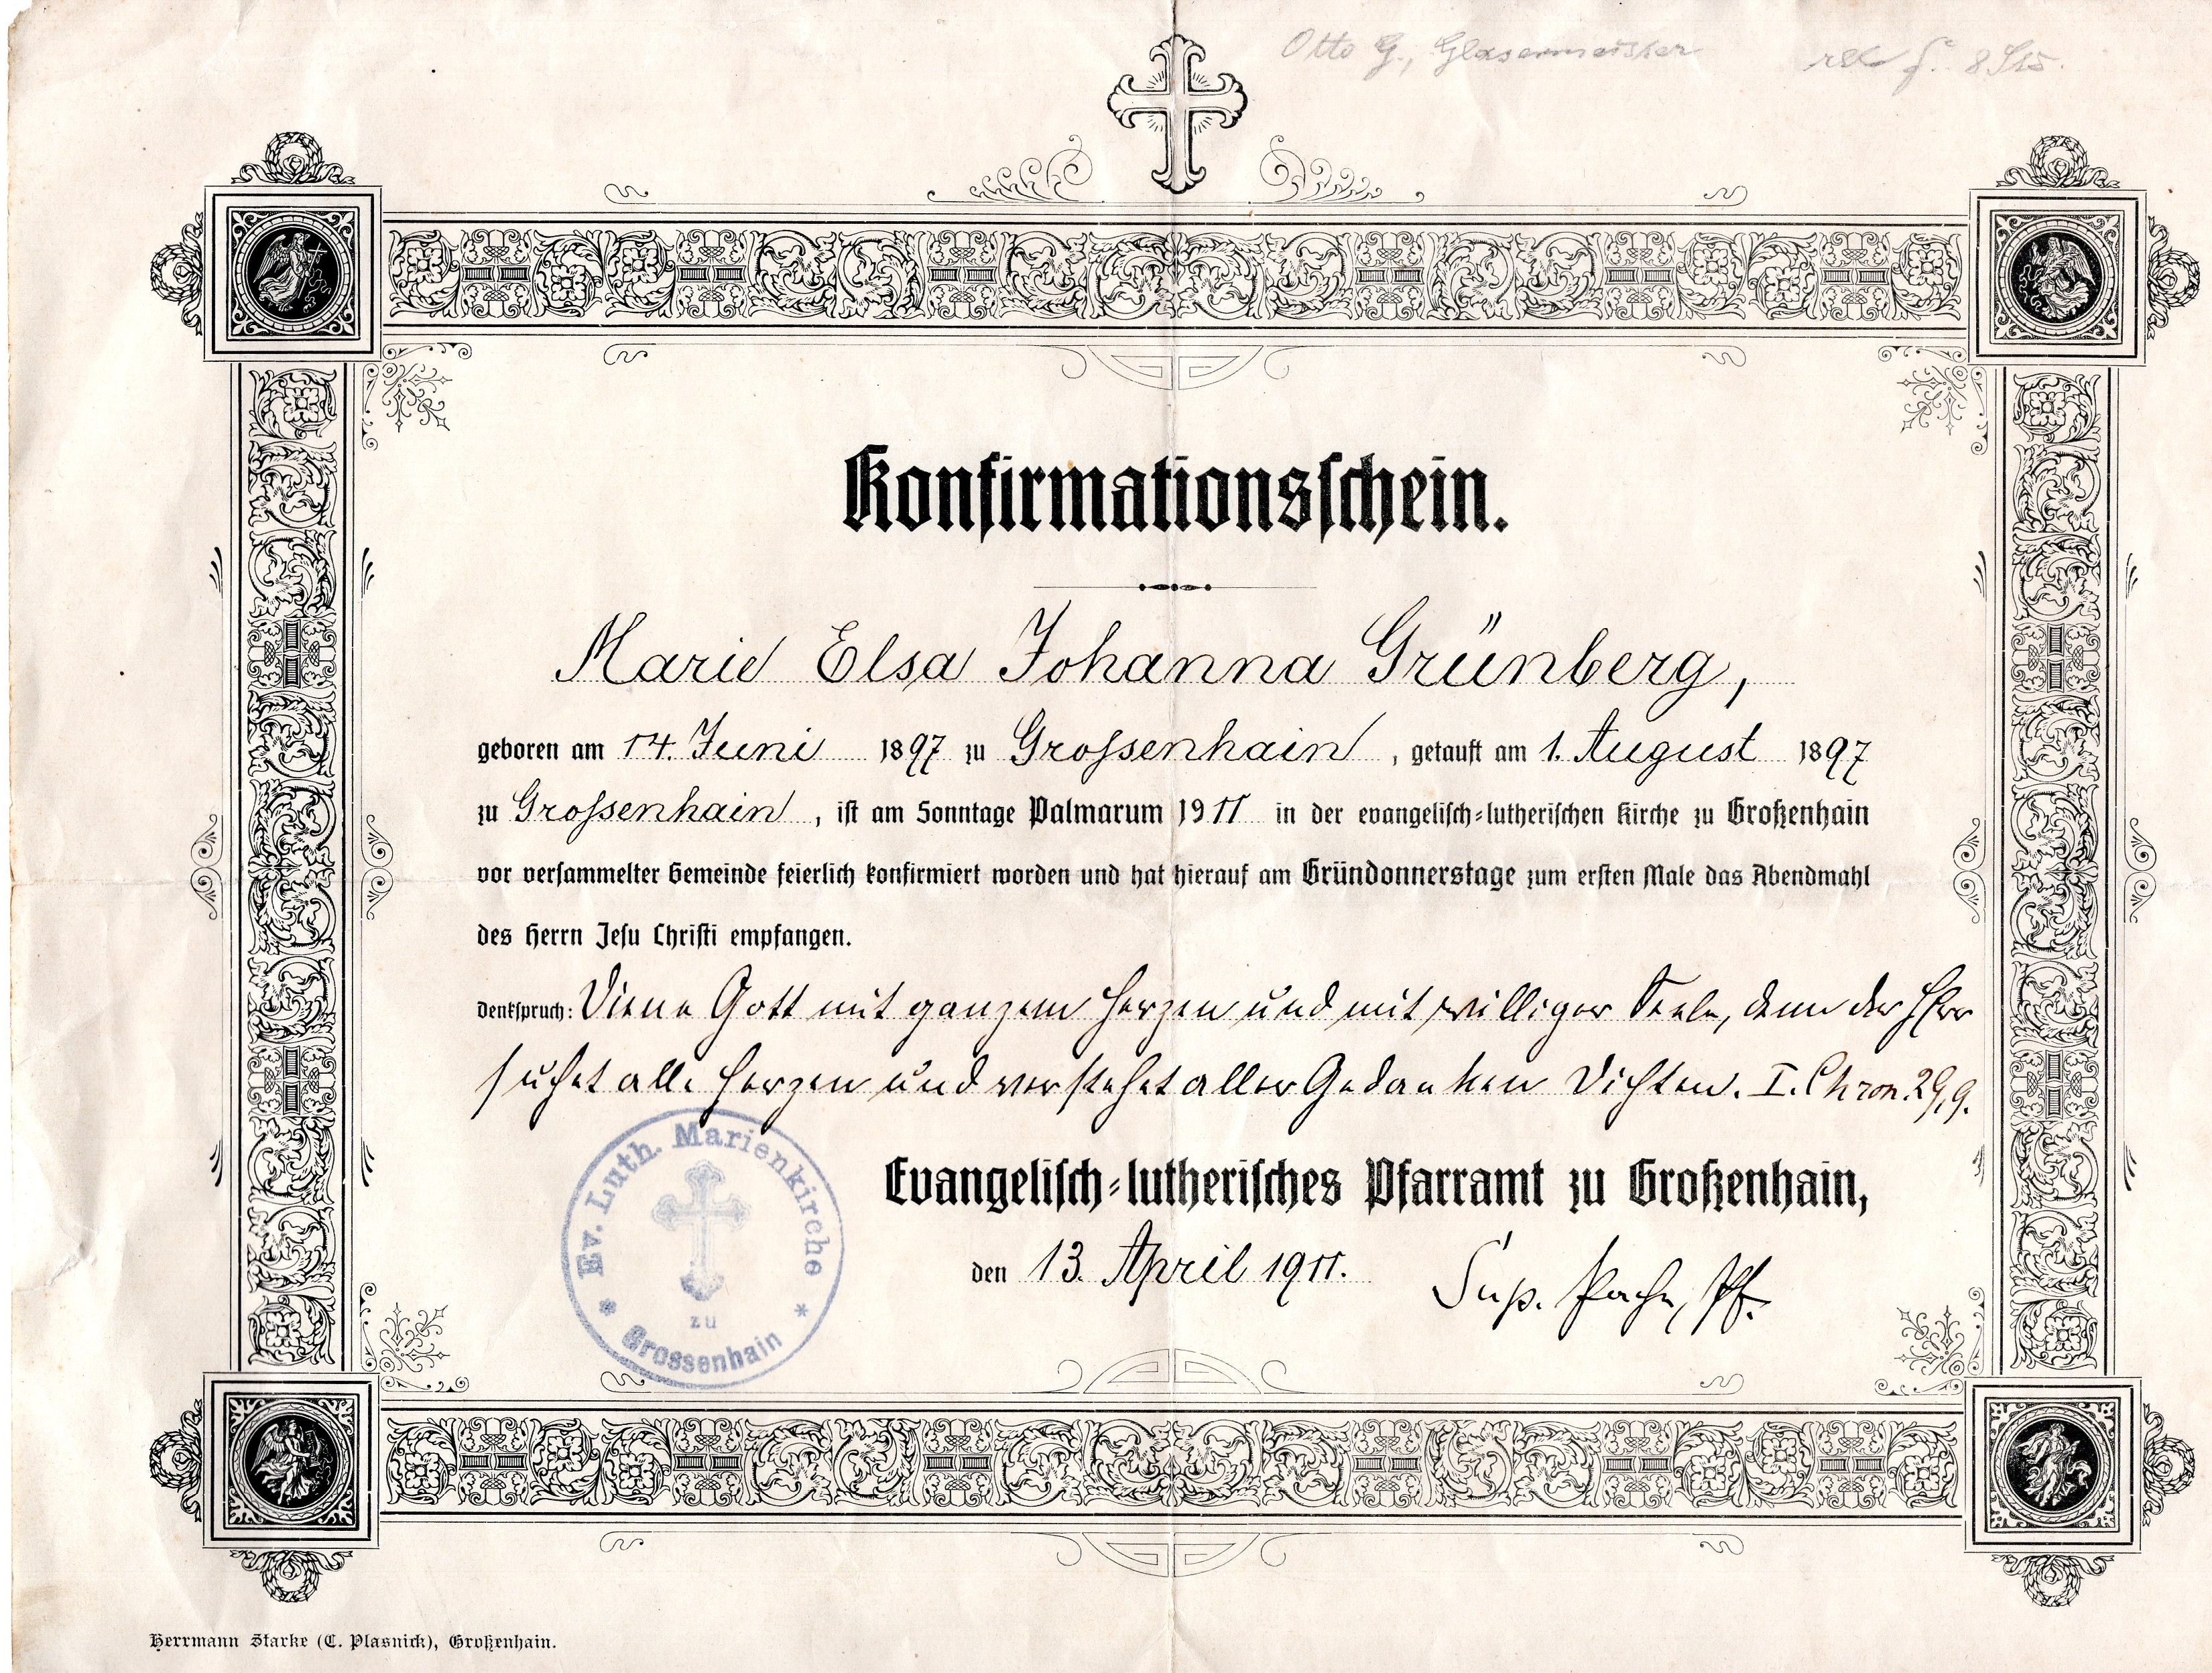 Otto G., Glasermeister
Konfirmationsschein.
Marie Elsa Johanna Grünberg,
geboren am 14. Juni 1897 zu Grossenhain, getauft am 1. August 1897
zu Grossenhain, ist am Sonntage Palmarum 1911 in der evangelisch-lutherischen Kirche zu Großenhain
vor versammelter Gemeinde feierlich konfirmiert worden und hat hierauf am Gründonnerstage zum ersten Male das Abendmahl
des Herrn Jesu Christi empfangen.
Denkspruch: Diene Gott mit ganzem Herzen und mit williger Seele, denn der HErr
suchet alle Herzen und verstehet aller Gedanken Dichten. I. Chron. 29,9.
Ev. Luth. Marienkirche
zu
Grossenhain
Evangelisch-lutherisches Pfarramt zu Großenhain,
den 13. April 1911. Sup. Pache, Pf.
Herrmann Starke (C. Plasnick), Großenhain.